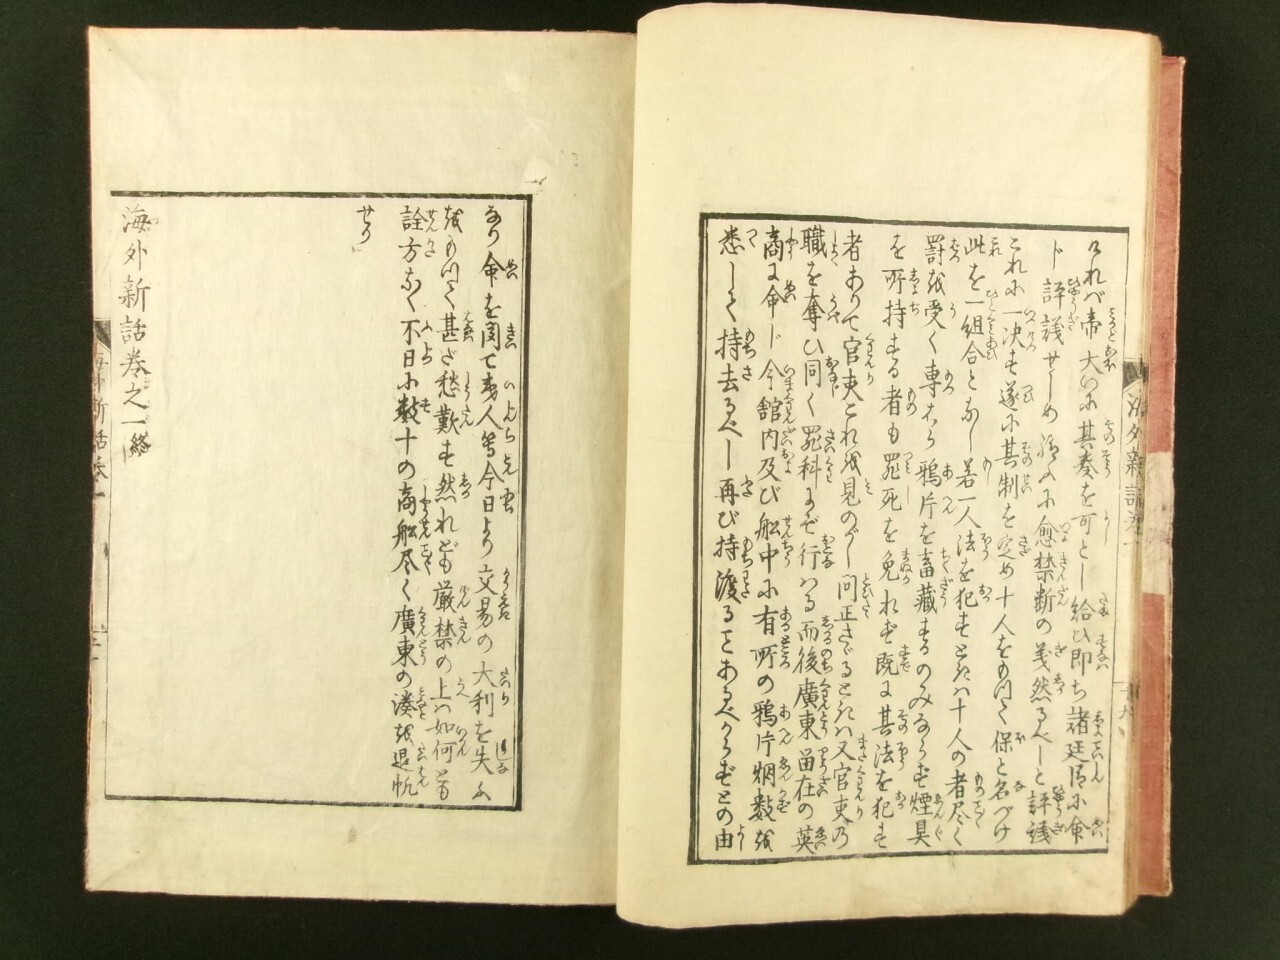 けれバ帝大いに其奏を可とし給ひ即ち諸廷臣に命
ト評議せしめ給ふに愈禁断の義然るべしと評議
これに一决す遂に其制を定め十人をもつて保と名づけ
此を一組合となし若一人法を犯すときハ十人の者尽く
罰を受く専ら鴉片を畜藏するのみならず煙具
を所持する者も罪死を免れず既に其法を犯す
者ありて官吏これを見のがし問正さゞるときハ又官吏乃
職を奪ひ同く罪科にぞ行ハる而後廣東留在の英
商に命じ今舘内及び船中に有所の鴉片烟数を
悉しく持去るべし再び持渡ることあるべからずとの由
海外新話巻一
なり命を聞て夷人等今日より交易の大利を失ふ
をもつて甚ざ愁歎す然れども厳禁の上ハ如何とも
詮方なく不日に数十の商船尽く廣東の湊を退帆
せり
海外新話巻之一終
海外新話巻一